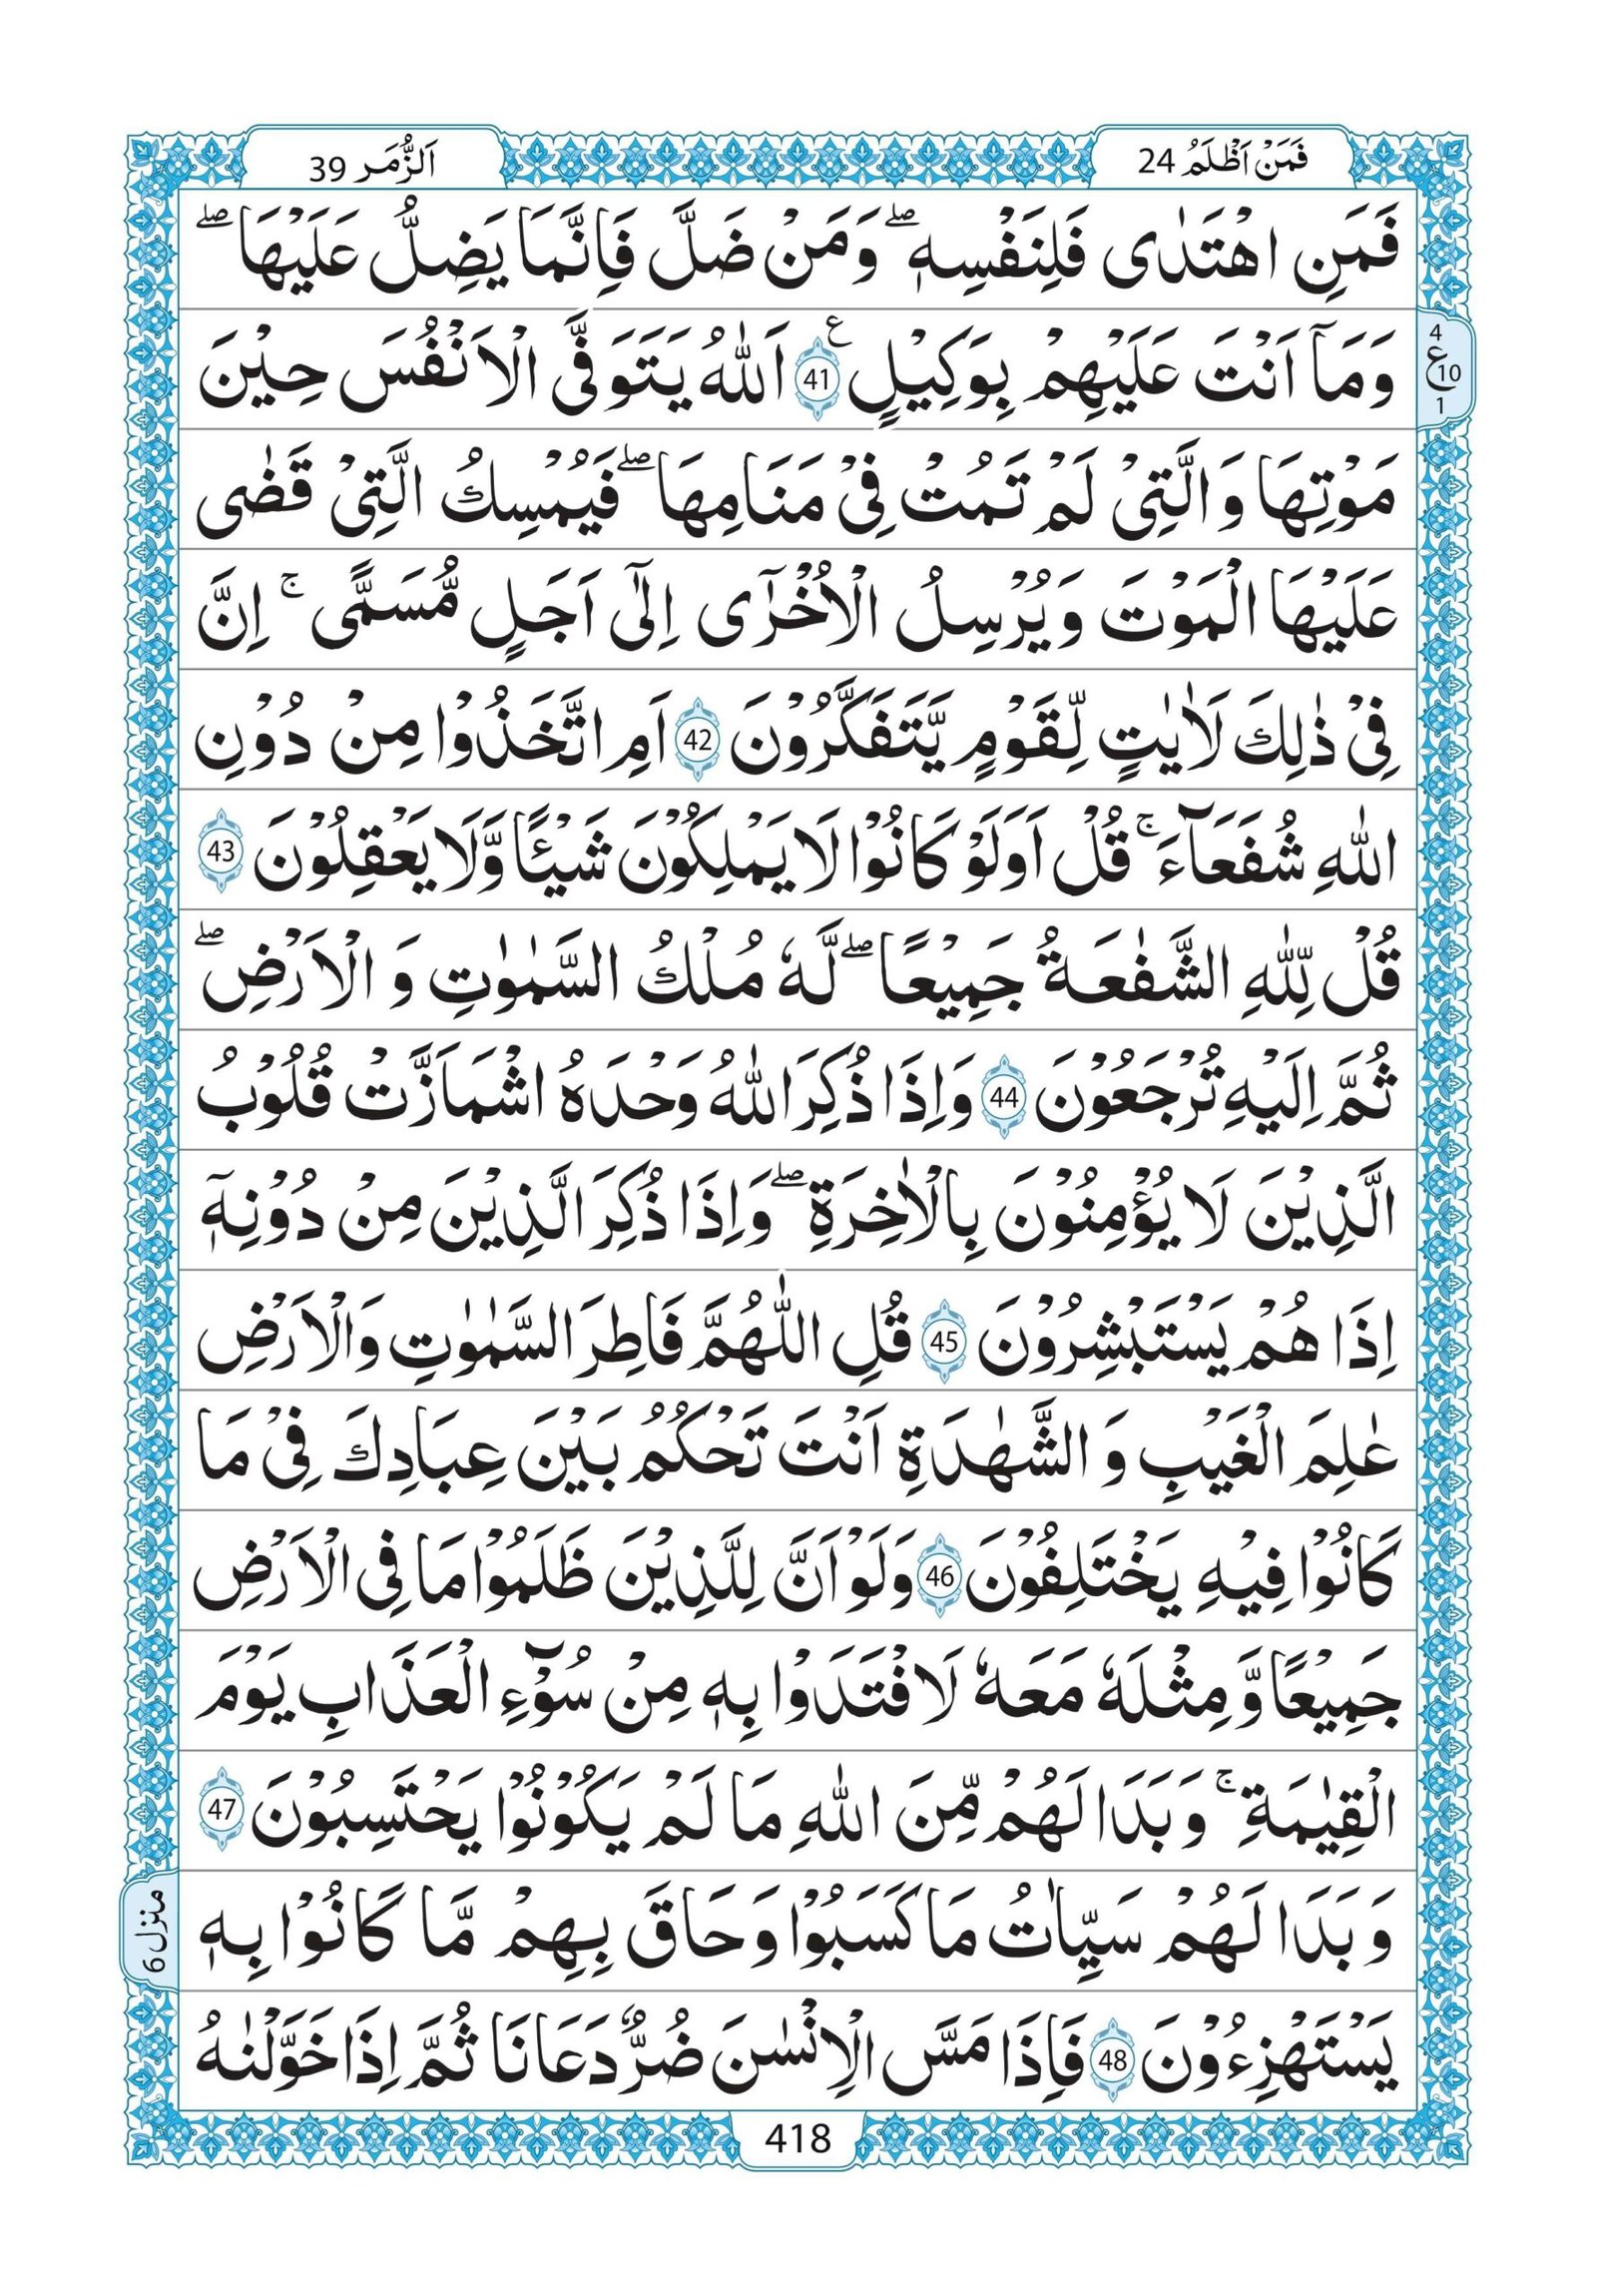 فَمَنْ اَظْلَمُ 24
اَلزُّمَر 39
فَمَنِ اهْتَدٰى فَلِنَفْسِهٖ ۖ وَمَنْ ضَلَّ فَاِنَّمَا يَضِلُّ عَلَيْهَا ۖ
وَمَاۤ اَنْتَ عَلَيْهِمْ بِوَكِيْلٍ ع 41 اَللّٰهُ يَتَوَفَّى الْاَنْفُسَ حِيْنَ
4
ع 10
1
مَوْتِهَا وَالَّتِيْ لَمْ تَمُتْ فِيْ مَنَامِهَا ۖ فَيُمْسِكُ الَّتِيْ قَضٰى
عَلَيْهَا الْمَوْتَ وَيُرْسِلُ الْاُخْرٰٓى اِلٰٓى اَجَلٍ مُّسَمًّى ۚ اِنَّ
فِيْ ذٰلِكَ لَاٰيٰتٍ لِّقَوْمٍ يَّتَفَكَّرُوْنَ 42 اَمِ اتَّخَذُوْا مِنْ دُوْنِ
اللّٰهِ شُفَعَآءَ ۚ قُلْ اَوَلَوْ كَانُوْا لَا يَمْلِكُوْنَ شَيْـًٔا وَّلَا يَعْقِلُوْنَ 43
قُلْ لِّلّٰهِ الشَّفٰعَةُ جَمِيْعًا ۖ لَّهٗ مُلْكُ السَّمٰوٰتِ وَ الْاَرْضِ ۖ
ثُمَّ اِلَيْهِ تُرْجَعُوْنَ 44 وَاِذَا ذُكِرَ اللّٰهُ وَحْدَهُ اشْمَاَزَّتْ قُلُوْبُ
الَّذِيْنَ لَا يُؤْمِنُوْنَ بِالْاٰخِرَةِ ۖ وَاِذَا ذُكِرَ الَّذِيْنَ مِنْ دُوْنِهٖٓ
اِذَا هُمْ يَسْتَبْشِرُوْنَ 45 قُلِ اللّٰهُمَّ فَاطِرَ السَّمٰوٰتِ وَالْاَرْضِ
عٰلِمَ الْغَيْبِ وَ الشَّهٰدَةِ اَنْتَ تَحْكُمُ بَيْنَ عِبَادِكَ فِيْ مَا
كَانُوْا فِيْهِ يَخْتَلِفُوْنَ 46 وَلَوْ اَنَّ لِلَّذِيْنَ ظَلَمُوْا مَا فِى الْاَرْضِ
جَمِيْعًا وَّمِثْلَهٗ مَعَهٗ لَافْتَدَوْا بِهٖ مِنْ سُوْٓءِ الْعَذَابِ يَوْمَ
الْقِيٰمَةِ ۚ وَبَدَا لَهُمْ مِّنَ اللّٰهِ مَا لَمْ يَكُوْنُوْا يَحْتَسِبُوْنَ 47
وَبَدَا لَهُمْ سَيِّاٰتُ مَا كَسَبُوْا وَحَاقَ بِهِمْ مَّا كَانُوْا بِهٖ
منزل 6
يَسْتَهْزِءُوْنَ 48 فَاِذَا مَسَّ الْاِنْسٰنَ ضُرٌّ دَعَانَا ثُمَّ اِذَا خَوَّلْنٰهُ
418